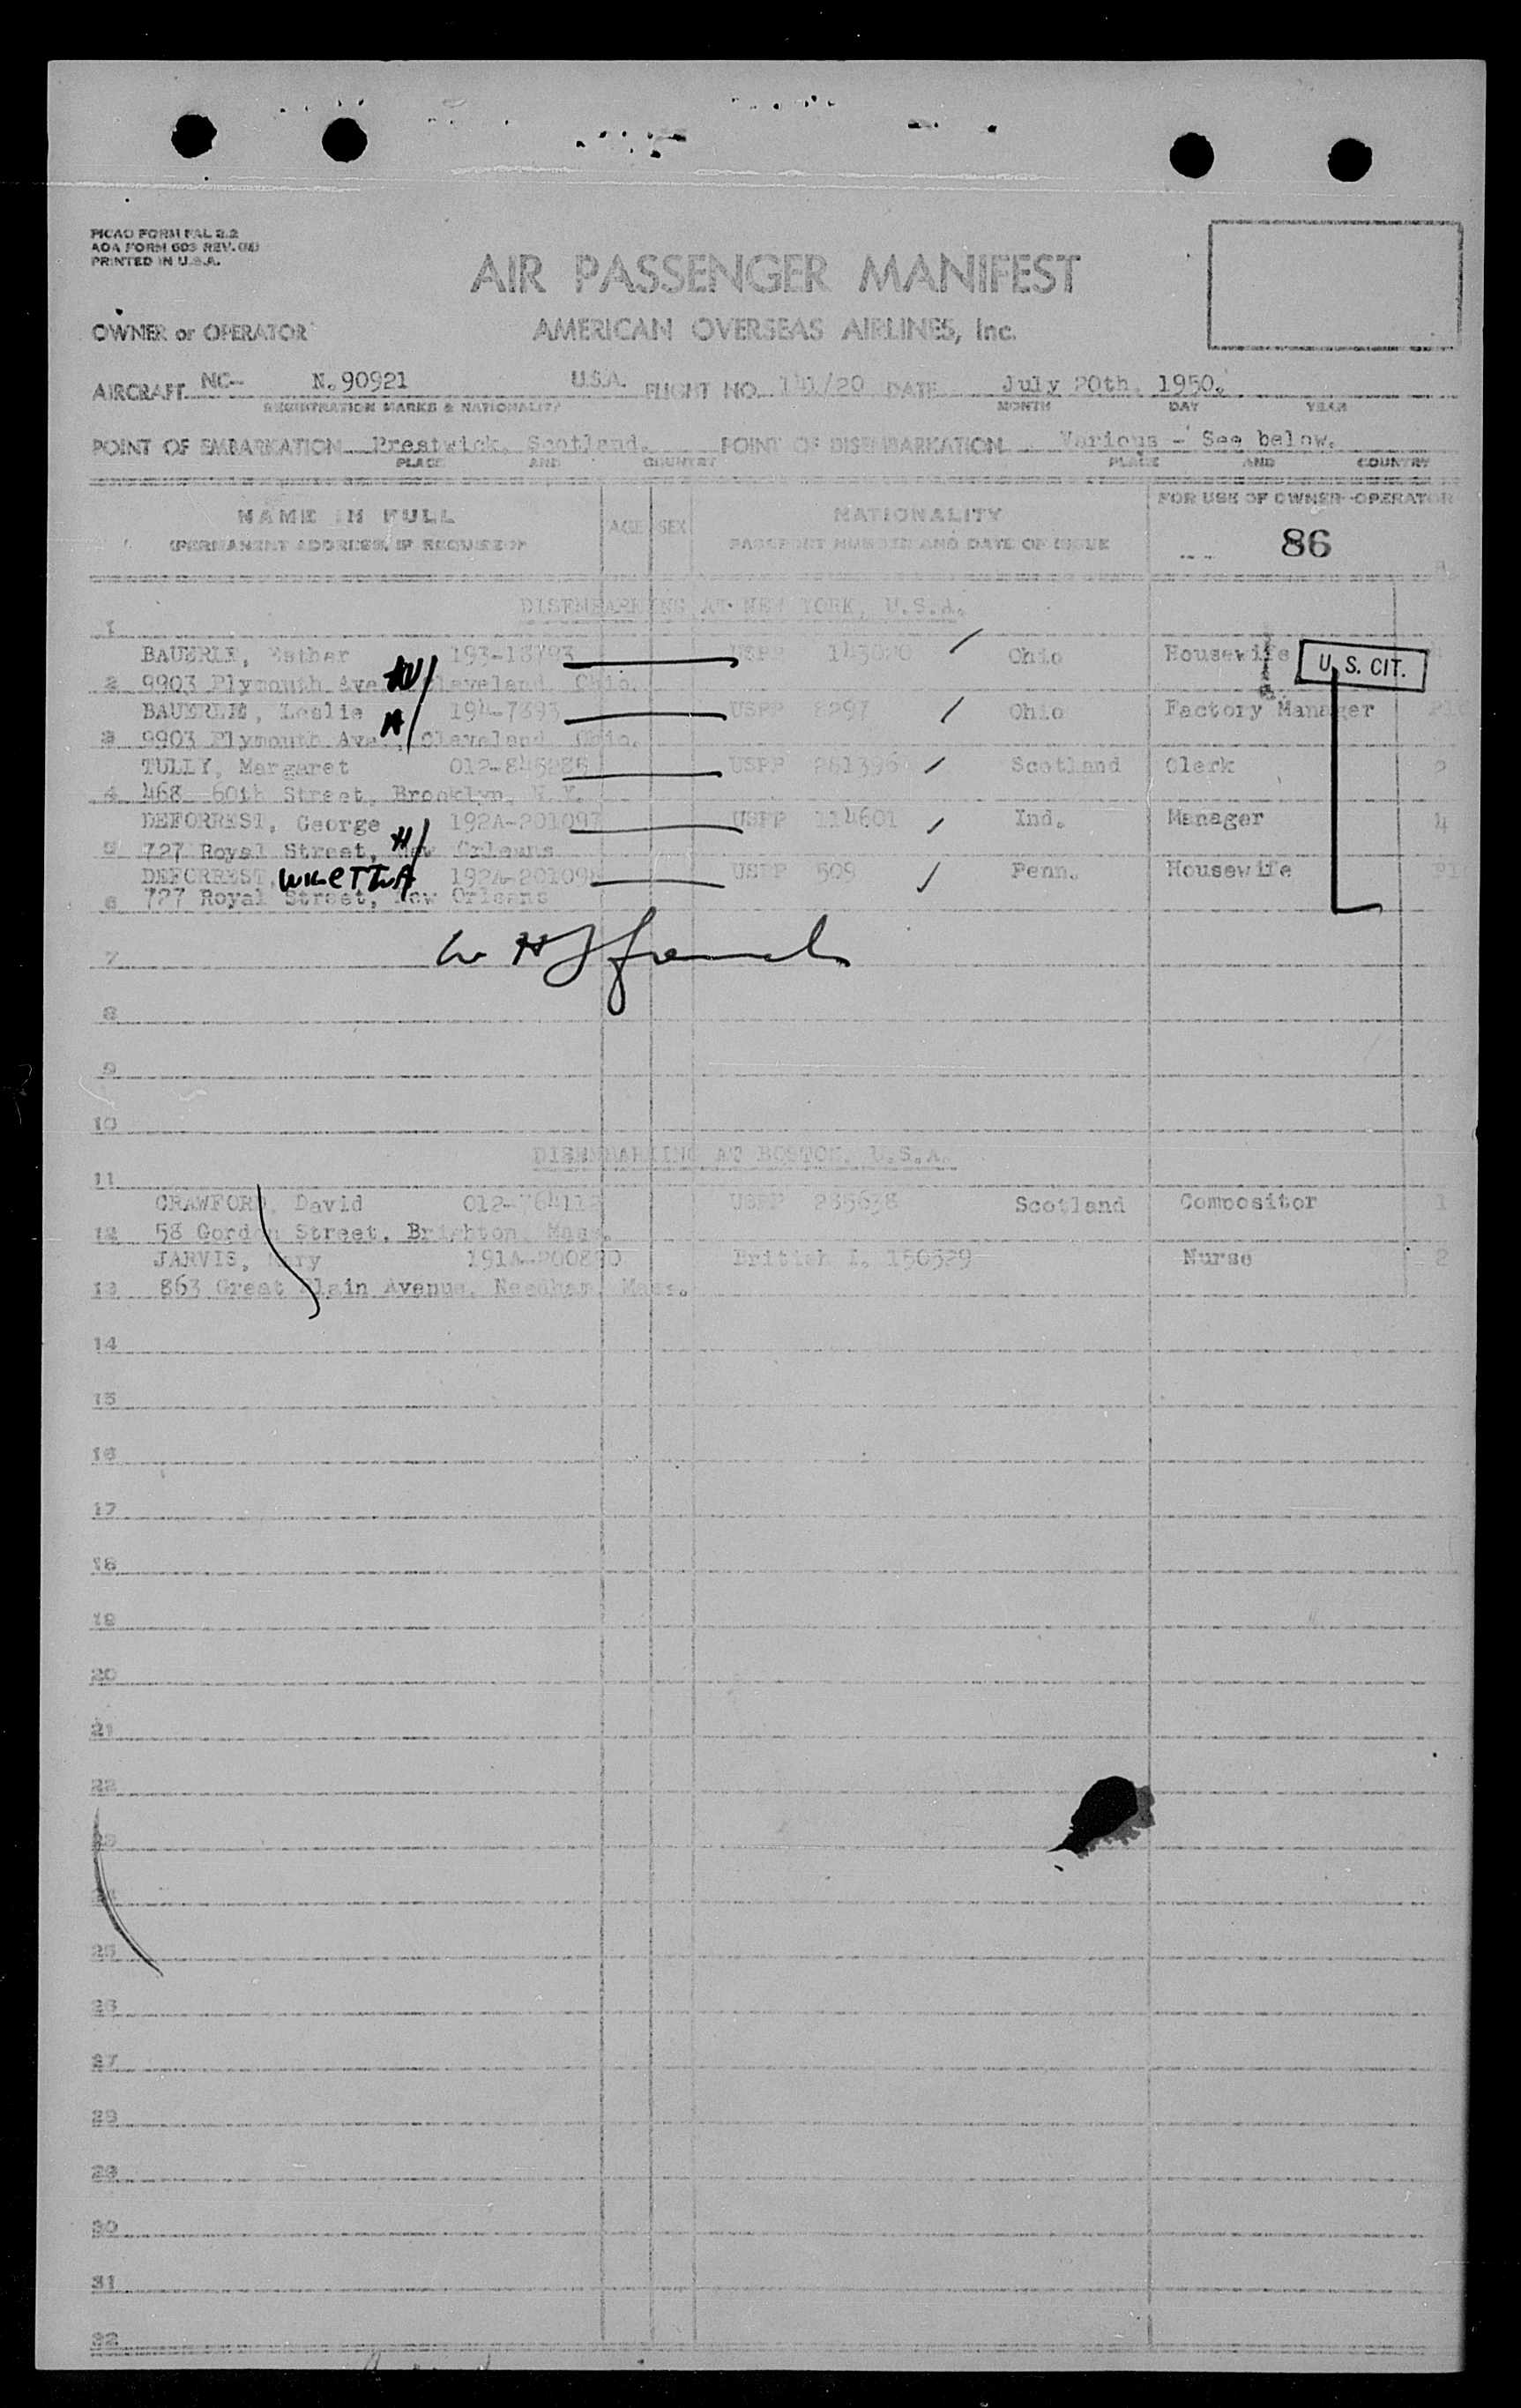 PICAO FORM FAL 2.2
AOA FORM 603 REV.
PRINTED IN U.S.A.
AIR PASSENGER MANIFEST
OWNER or OPERATOR AMERICAN OVERSEAS AIRLINES, Inc.
AIRCRAFT NC- N.90921 U.S.A. FLIGHT NO. 141/20 DATE July 20th, 1950.
REGISTRATION MARKS & NATIONALITY MONTH DAY YEAR
POINT OF EMBARKATION Prestwick, Scotland. POINT OF DISEMBARKATION Various - See below.
PLACE AND COUNTRY PLACE AND COUNTRY
NAME IN FULL AGE SEX NATIONALITY FOR USE OF OWNER-OPERATOR
(PERMANENT ADDRESS, IF REQUIRED) PASSPORT NUMBER AND DATE OF ISSUE 86
DISEMBARKING AT NEW YORK, U.S.A.
1
BAUERLE, Esther 193-18793 USPP 143020 Ohio Housewife U.S. CIT.
2 9903 Plymouth Ave. W Cleveland, Ohio.
BAUERLE, Leslie 194-7393 USPP 8297 Ohio Factory Manager
3 9903 Plymouth Ave., Cleveland Ohio.
TULLY, Margaret 012-845286 USPP 261396 Scotland Clerk 2
4 468 60th Street, Brooklyn, N.Y.
DEFORREST, George H 192A-201097 USPP 114601 Ind. Manager 4
5 727 Royal Street, New Orleans
DEFORREST, 192A-201098 USPP 509 Penn. Housewife
6 727 Royal Street, New Orleans
7
8
9
10
DISEMBARKING AT BOSTON, U.S.A.
11
CRAWFORD, David USPP 285638 Scotland Compositor 1
12 58 Gordon Street, Brighton Mass.
JARVIS, Mary 191A-200890 British I. 150529 Nurse 2
13 863 Great Plain Avenue, Needham, Mass.
14
15
16
17
18
19
20
21
22
23
24
25
26
27
28
29
30
31
32